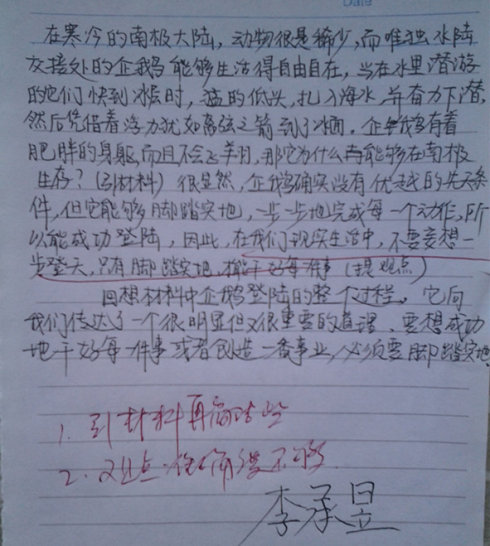 Date
在寒冷的南极大陆，动物很是稀少，而唯独水陆
交接处的企鹅能够生活得自由自在，当在水里潜游
的它们快到冰层时，猛的低头，扎入海水，并奋力下潜，
然后凭借着浮力犹如离弦之箭动冰面。企鹅有着
肥胖的身躯，而且不会飞翔，那它为什么能够在南极
生存？（引材料）很显然，企鹅确实没有优越的先天条
件，但它能够脚踏实地，一步一步地完成每一个动作，所
以能成功登陆，因此，在我们现实生活中，不要妄想一
步登天，只有脚踏实地，干好每件事（提观点）
回想材料中企鹅登陆的整个过程。它向
我们传达了一个很明显但又很重要的道理，要想成功
地干好每一件事或者创造一番事业，必须要脚踏实地
1. 引材料再简洁些
2. 观点 不够
李承昱